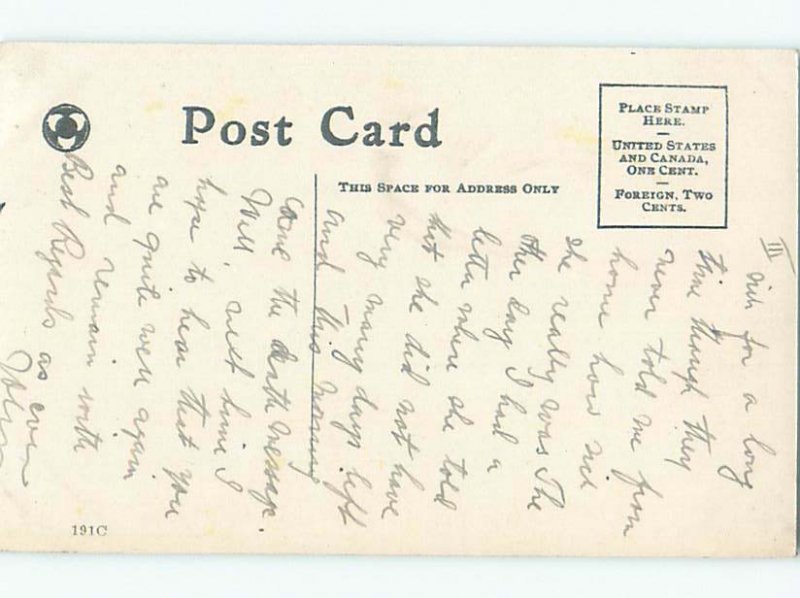 Post Card
THIS SPACE FOR ADDRESS ONLY
PLACE STAMP
HERE.
UNITED STATES
AND CANADA,
ONE CENT.
FOREIGN, TWO
CENTS.
III
sick for a long
time though they
never told me from
home how sick
she really was The
other day I had a
letter when she told
that she did not have
very many days left
and this morning
came the death message.
Well, next time I
hope to hear that you
are quite well again
and remain with
Best Regards as ever
191C